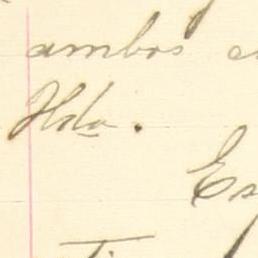 ambos
Hda.
Es